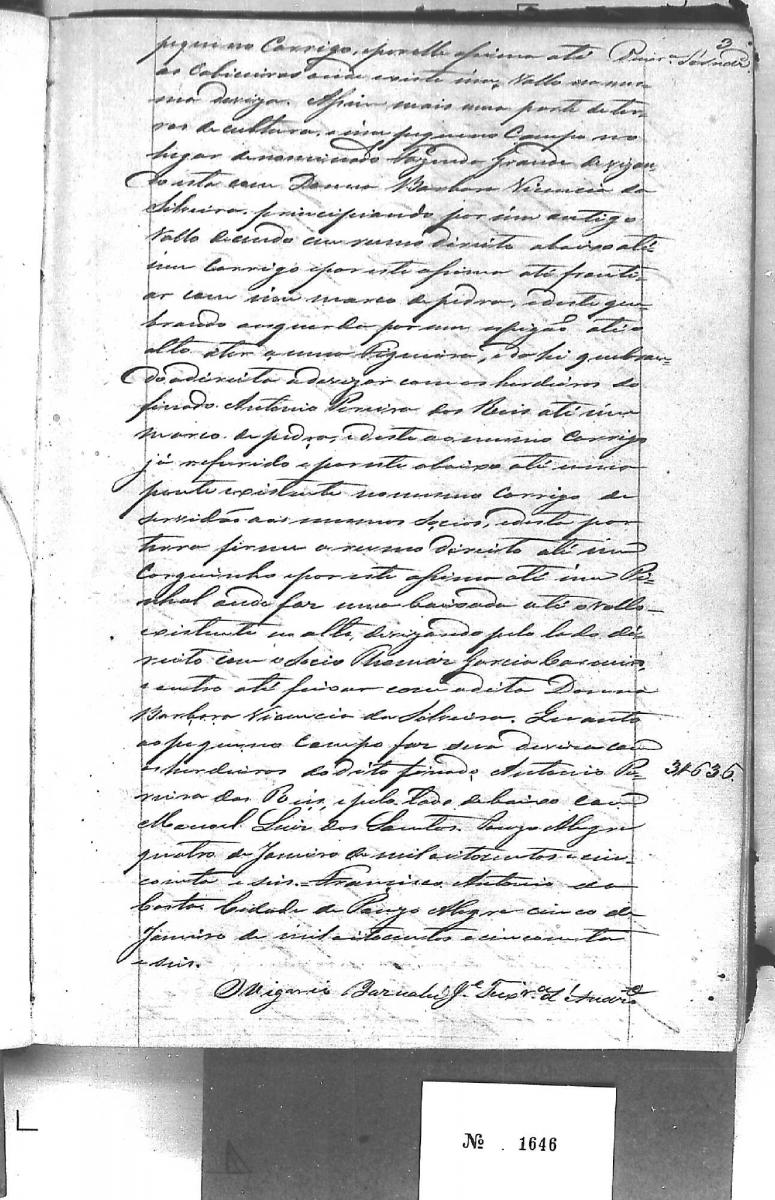 3
pequeno Corrigo, e por elle assima até
as Cabiceiras onde existe um Vallo na mes-
ma deviza. Assim mais uma parte de ter-
ras de cultura, e um pequeno Campo no
lugar denominado Fazenda Grande devizan-
do esta com Donna Barbora Vicencia da
Silveira, principiando por um antigo
Vallo decendo em rumo direito abaixo até
um Corrigo e por este assima até fronti-
ar com um marco de pedra, e deste que-
brando a esquerda por um espigaõ até o
alto ater a uma Figueira, e do hi quebran-
do a direita a devizar com os herdeiros do
finado Antonio Pereira dos Reis até um
marco de pedra, e deste ao mesmo Corrigo
já referido e por este abaixo até uma
ponte existente no mesmo Corrigo de
servidaõ aos mesmos Socios, e deste por
terra firme a rumo direito até um
Corguinho e por este assima até um Pi-
nhal onde faz uma baixada até o Vallo
existente no alto, devizando pelo lado di-
reito com o Socio Thomáz Garcia
e outro até feixar com a dita Donna
Barbora Vicencia da Silveira. Quanto
ao pequeno Campo faz sua deviza com
os herdeiros do dito finado Antonio Pe-
reira dos Reis, e pelo lado debaixo com
Manoel Luiz dos Santos. Pouzo Alegre
quatro de Janeiro de mil oitocentos e cin-
coenta e seis. Francisco Antonio da
Costa. Cidade de Pouzo Alegre cinco de
Janeiro de mil oitocentos e cincoenta
e seis.
O Vigario Barnabé J.e Teix.ra d'Andr.e
31636.
Nº 1646